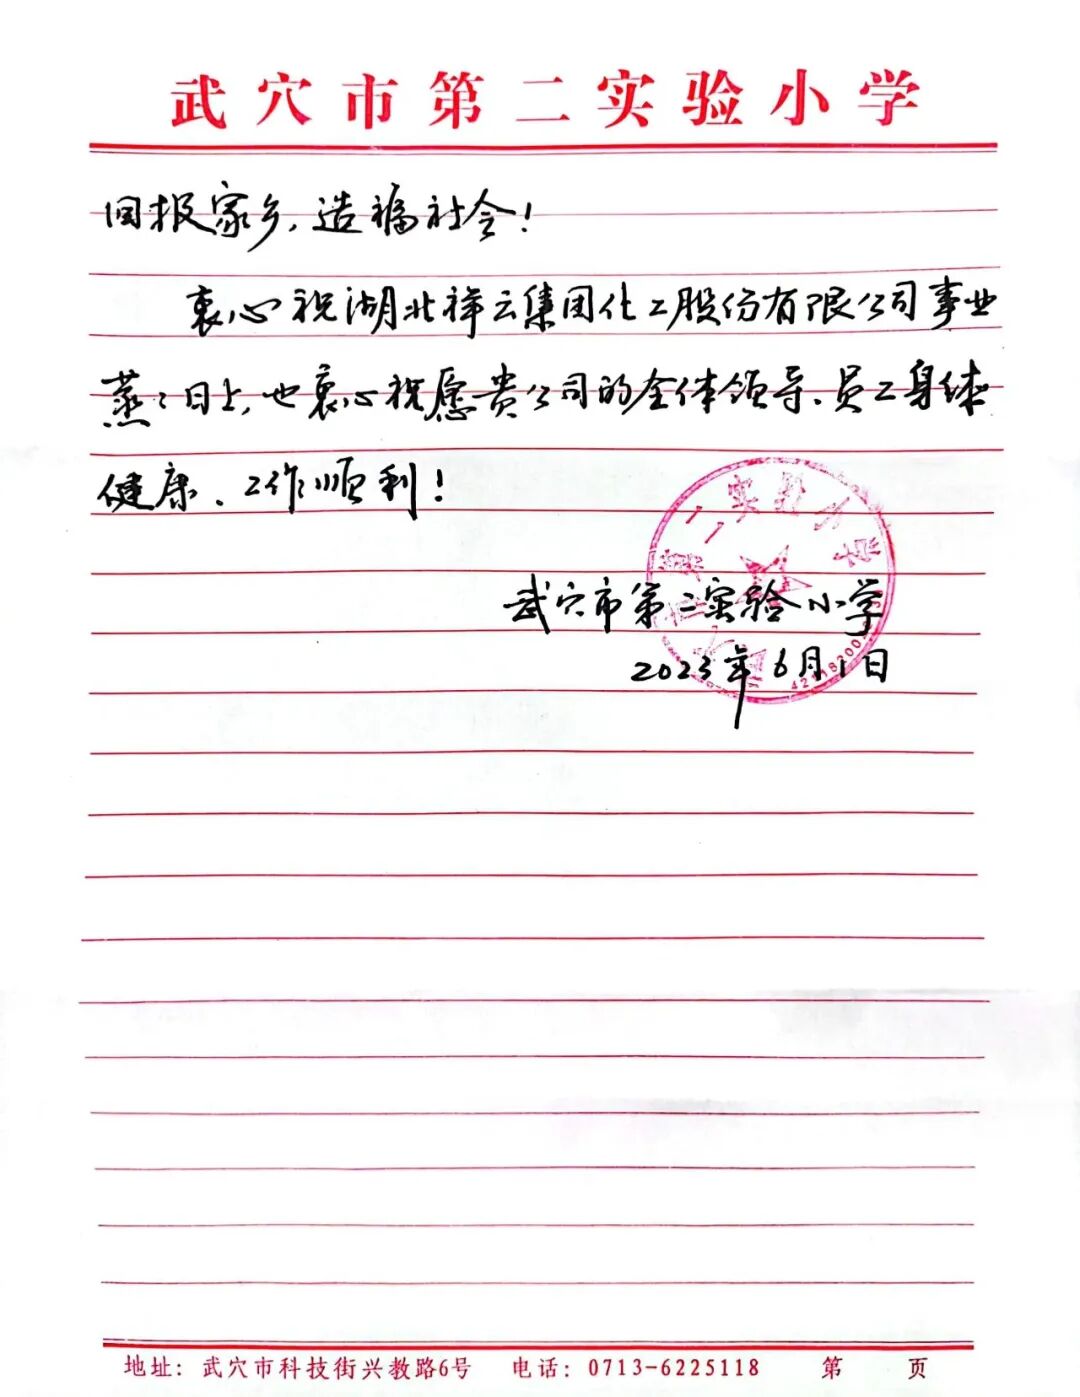 武穴市第二实验小学
回报家乡,造福社会!
衷心祝湖北祥云集团化工股份有限公司事业
蒸々日上,也衷心祝愿贵公司的全体领导、员工身体
健康、工作顺利!
第二实验小学
武穴市第二实验小学
2023年6月1日
地址:武穴市科技街兴教路6号 电话:0713-6225118 第 页